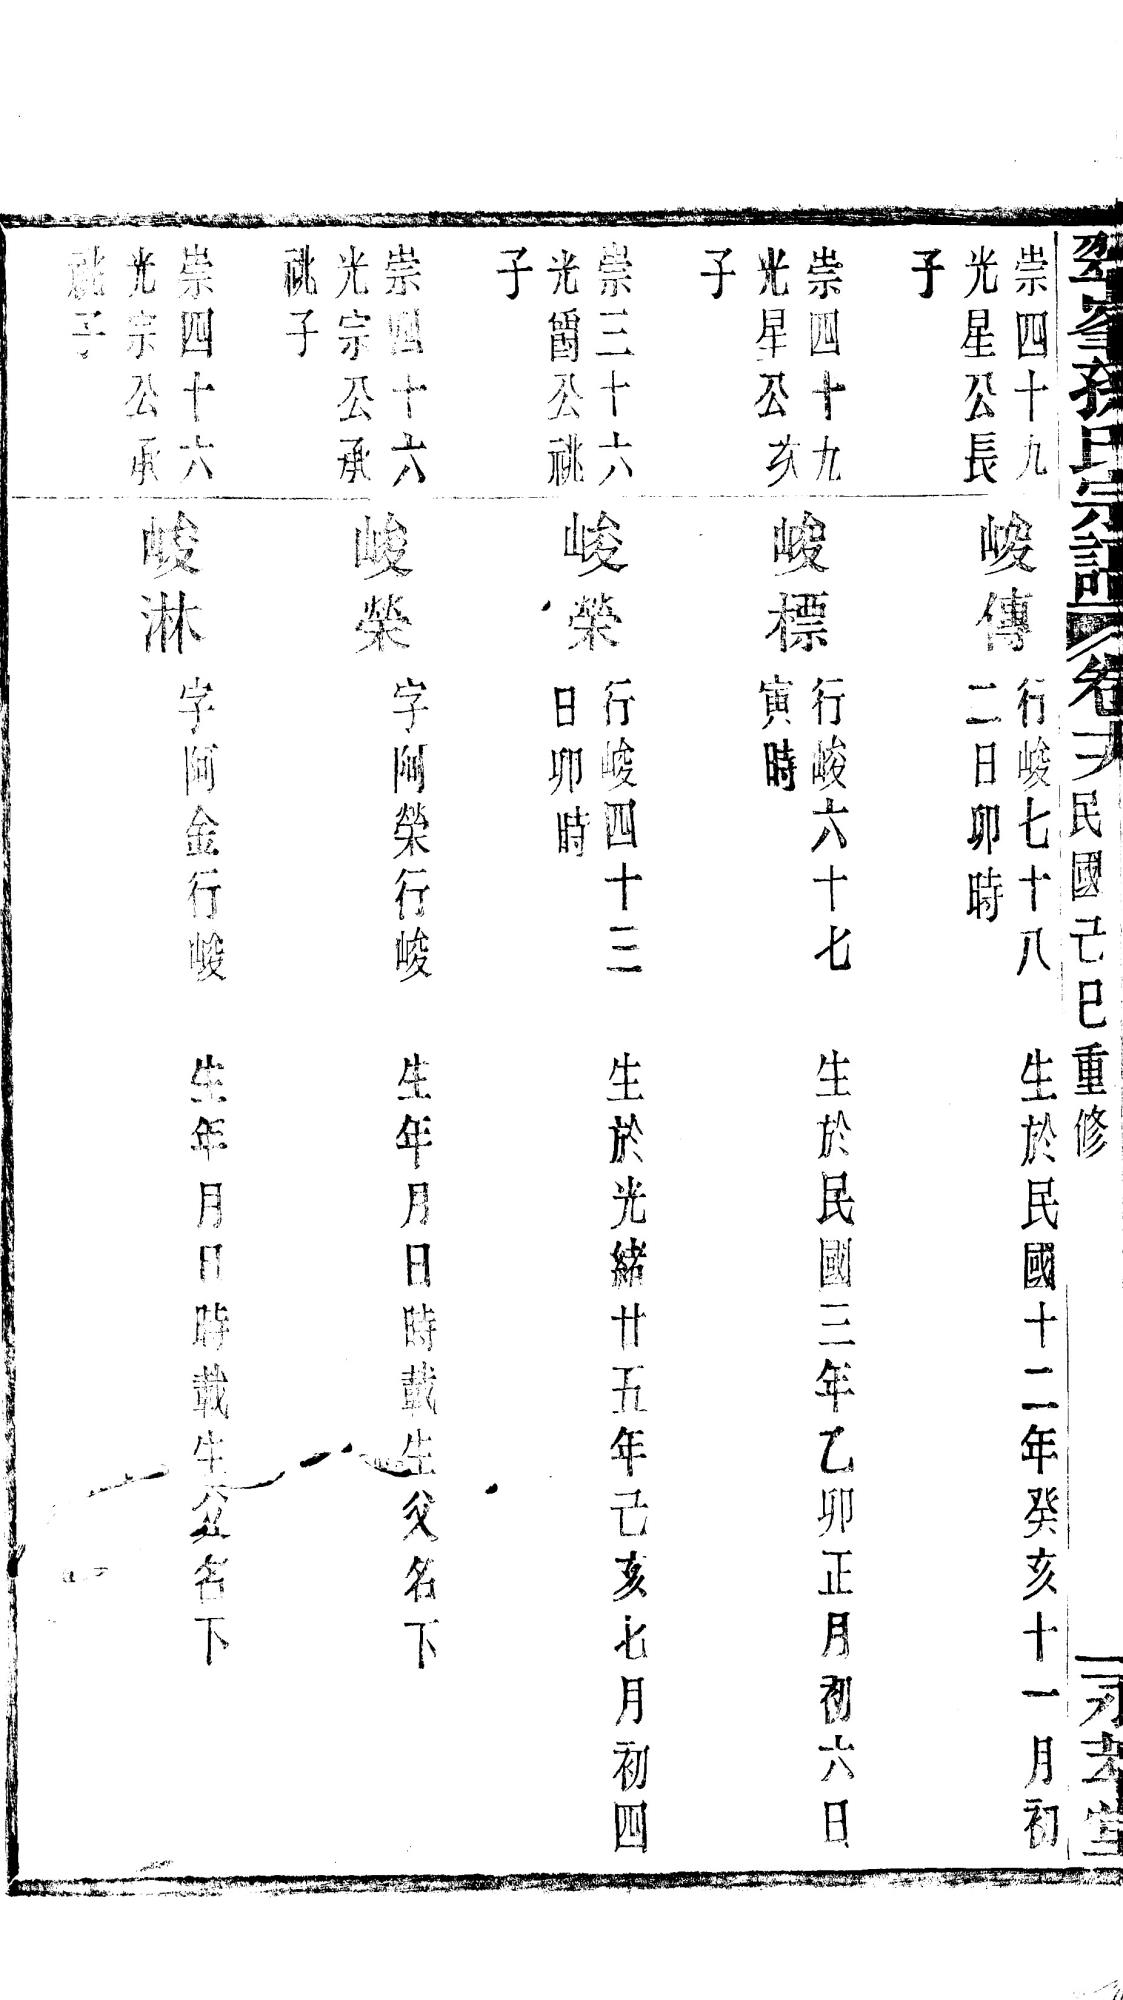 孫氏宗譜 卷 民國己巳重修
崇四十九
光星公長
子
峻傳
行峻七十八 生於民國十二年癸亥十一月初
二日卯時
崇四十九
光星公次
子
峻標
行峻六十七 生於民國三年乙卯正月初六日
寅時
崇三十六
光公祧
子
峻榮
行峻四十二 生於光緒廿五年己亥七月初四
日卯時
崇四十六
光宗公承
祧子
峻榮
字阿榮行峻 生年月日時載生父名下
崇四十六
光宗公承
祧子
峻淋
字阿金行峻 生年月日時載生父名下